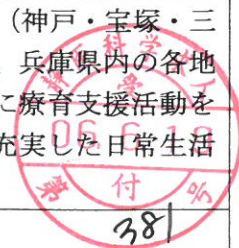 (神戸・宝塚・三
兵庫県内の各地
に療育支援活動を
充実した日常生活
受
06.6.18
第 付 号
381